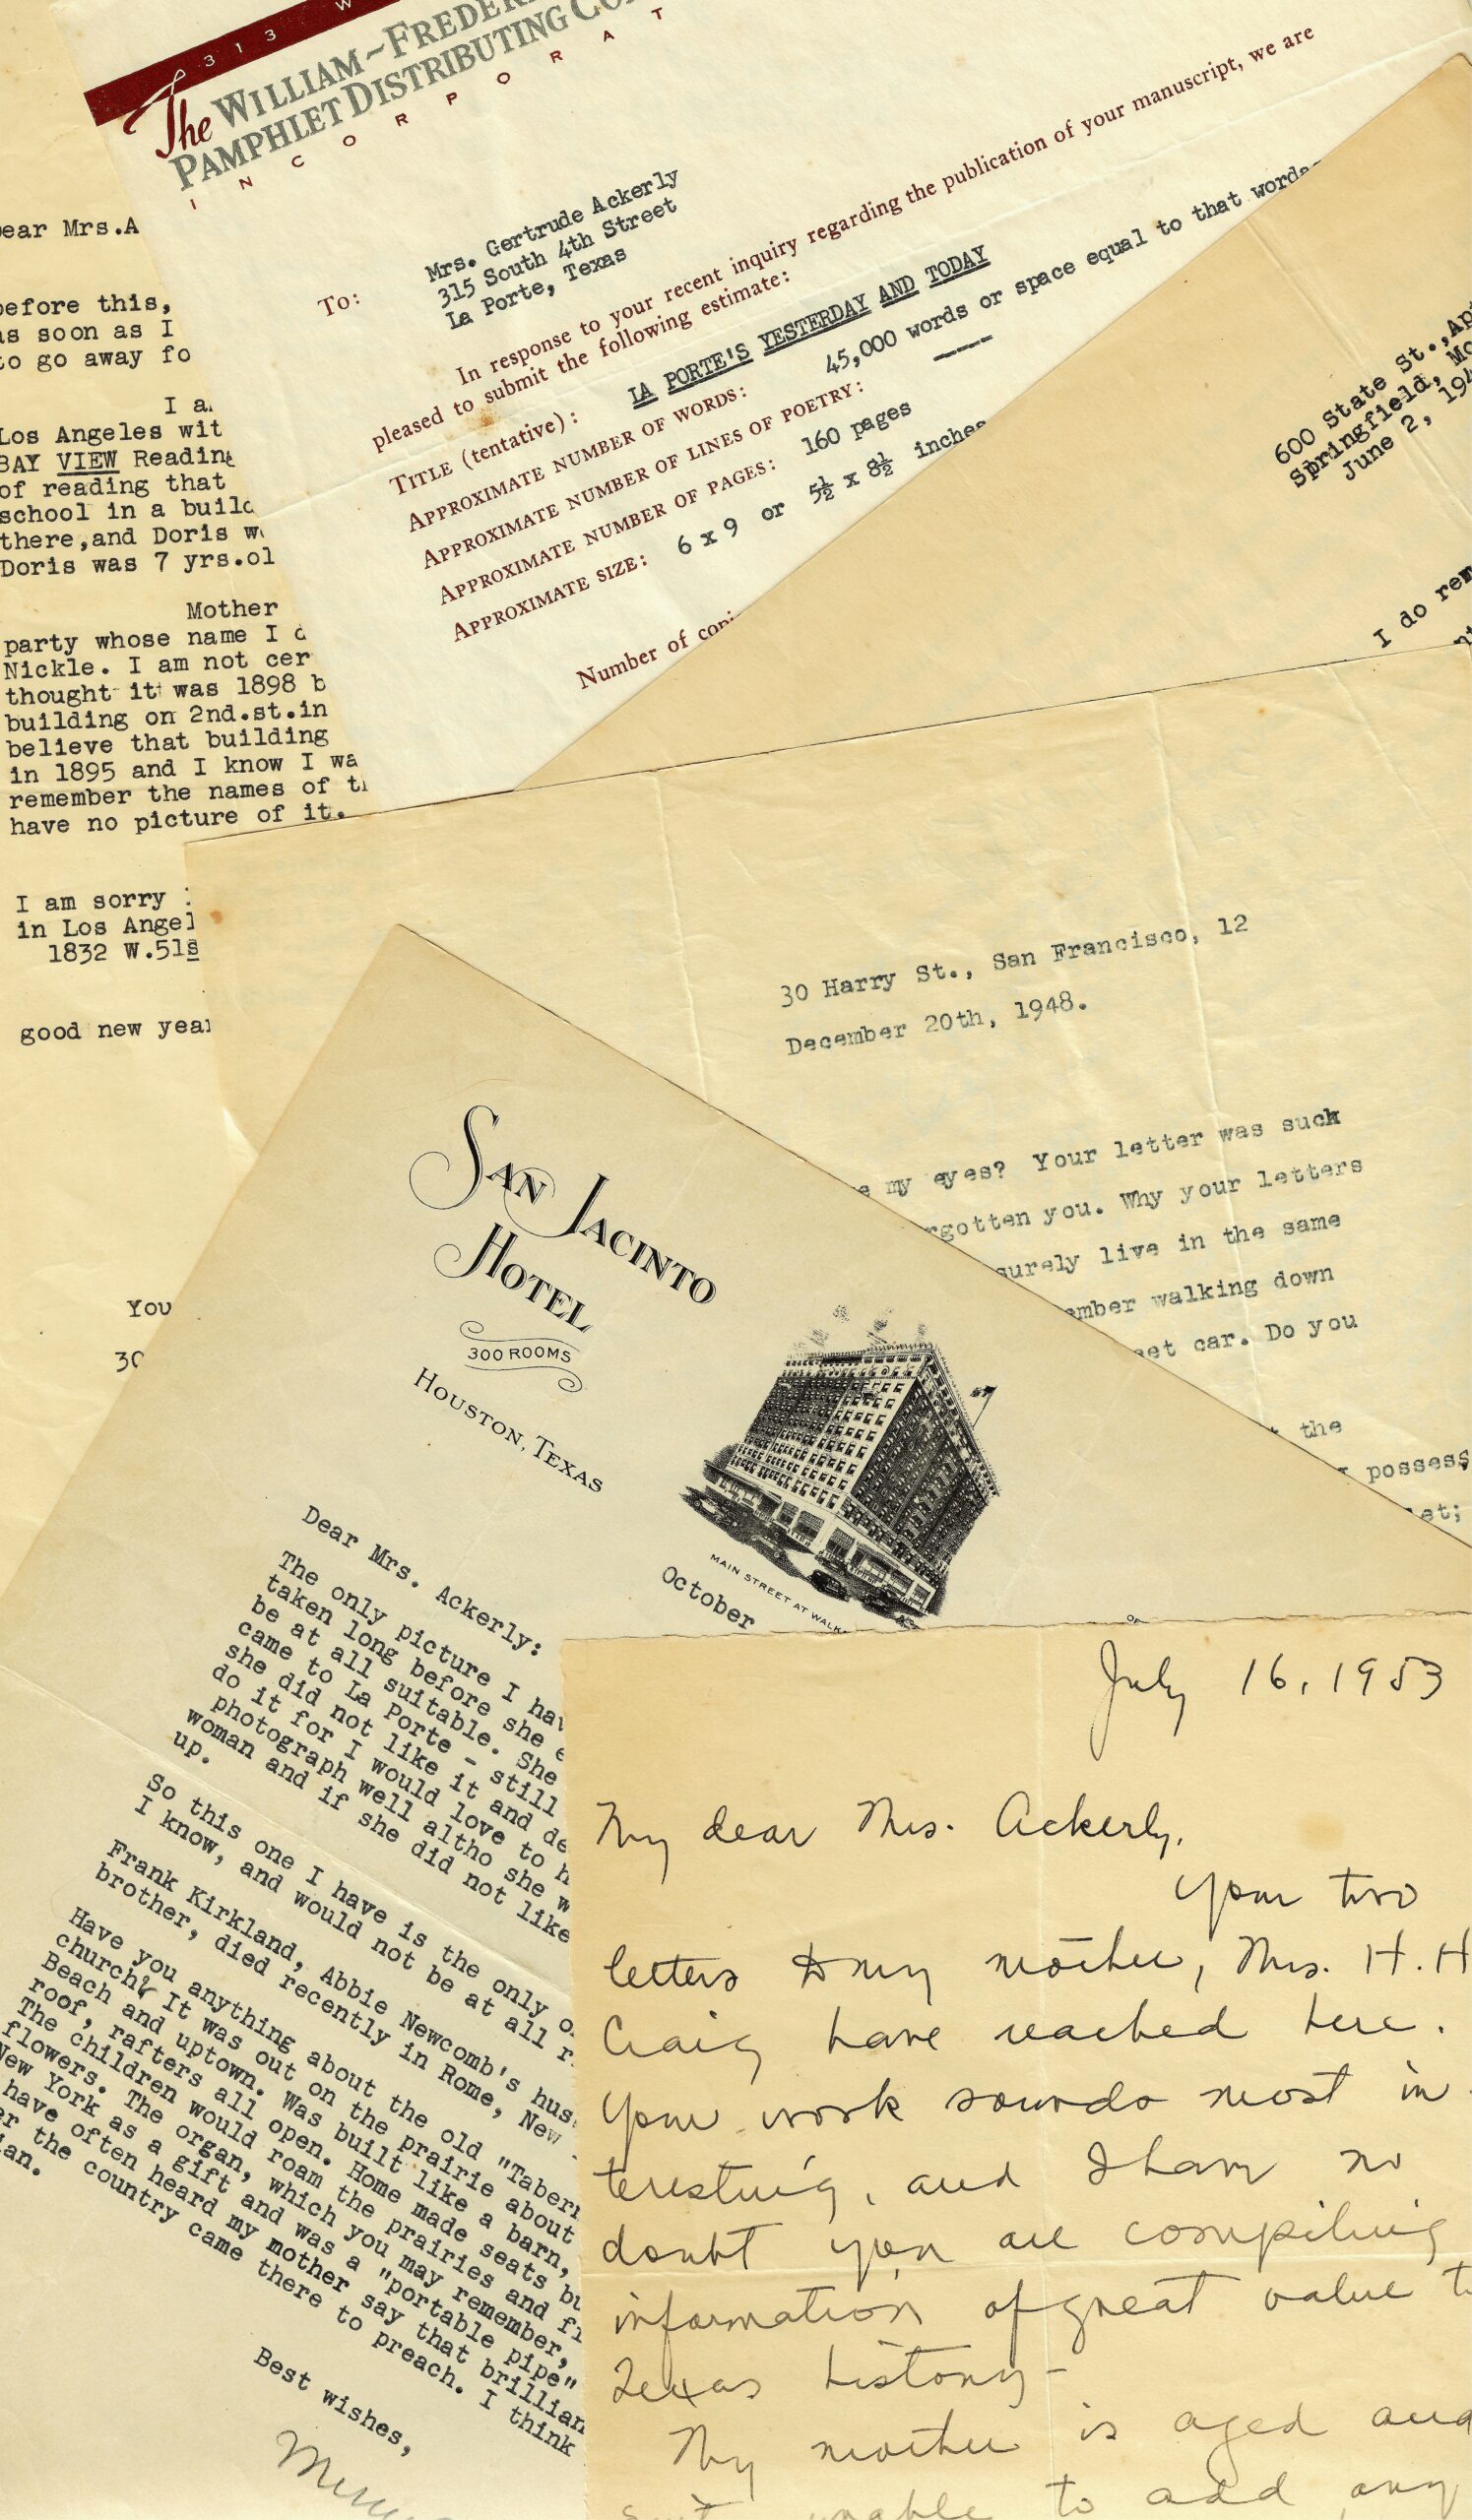 313 W
The WILLIAM-FREDERI
PAMPHLET DISTRIBUTING CO
INCORPORAT
To:
Mrs. Gertrude Ackerly
315 South 4th Street
La Porte, Texas
In response to your recent inquiry regarding the publication of your manuscript, we are
pleased to submit the following estimate:
TITLE (tentative): LA PORTE'S YESTERDAY AND TODAY
APPROXIMATE NUMBER OF WORDS: 45,000 words or space equal to that words
APPROXIMATE NUMBER OF LINES OF POETRY: -----
APPROXIMATE NUMBER OF PAGES: 160 pages
APPROXIMATE SIZE: 6 x 9 or 5½ x 8½ inches
Number of copi
ear Mrs.A
before this,
as soon as I
to go away fo
I a
Los Angeles wit
BAY VIEW Reading
of reading that
school in a build
there,and Doris w
Doris was 7 yrs.ol
Mother
party whose name I
Nickle. I am not cer
thought it was 1898 b
building on 2nd.st.in
believe that building
in 1895 and I know I wa
remember the names of t
have no picture of it.
I am sorry
in Los Angel
1832 W.51s
good new year
You
30
600 State St.,Ap
Springfield, Mo
June 2, 194
I do rem
30 Harry St., San Francisco, 12
December 20th, 1948.
e my eyes? Your letter was such
rgotten you. Why your letters
surely live in the same
ember walking down
eet car. Do you
t the
I possess
et;
SAN JACINTO
HOTEL
300 ROOMS
HOUSTON, TEXAS
MAIN STREET AT WALK
October
Dear Mrs. Ackerly:
The only picture I hav
taken long before she
be at all suitable. She
came to La Porte - still
she did not like it and de
do it for I would love to h
photograph well altho she w
woman and if she did not like
up.
So this one I have is the only o
I know, and would not be at all r
Frank Kirkland, Abbie Newcomb's hus
brother, died recently in Rome, New
Have you anything about the old "Tabern
church? It was out on the prairie about
Beach and uptown. Was built like a barn,
roof, rafters all open. Home made seats bu
The children would roam the prairies and fi
flowers. The organ, which you may remember,
New York as a gift and was a "portable pipe"
have often heard my mother say that brillian
er the country came there to preach. I think
ian.
Best wishes,
July 16, 1953
My dear Mrs. Ackerly,
Your two
letters to my mother, Mrs. H. H
Craig have reached here.
Your work sounds most in-
teresting, and I have no
doubt you are compiling
information of great value t
Texas history-
My mother is aged and
unable to add any